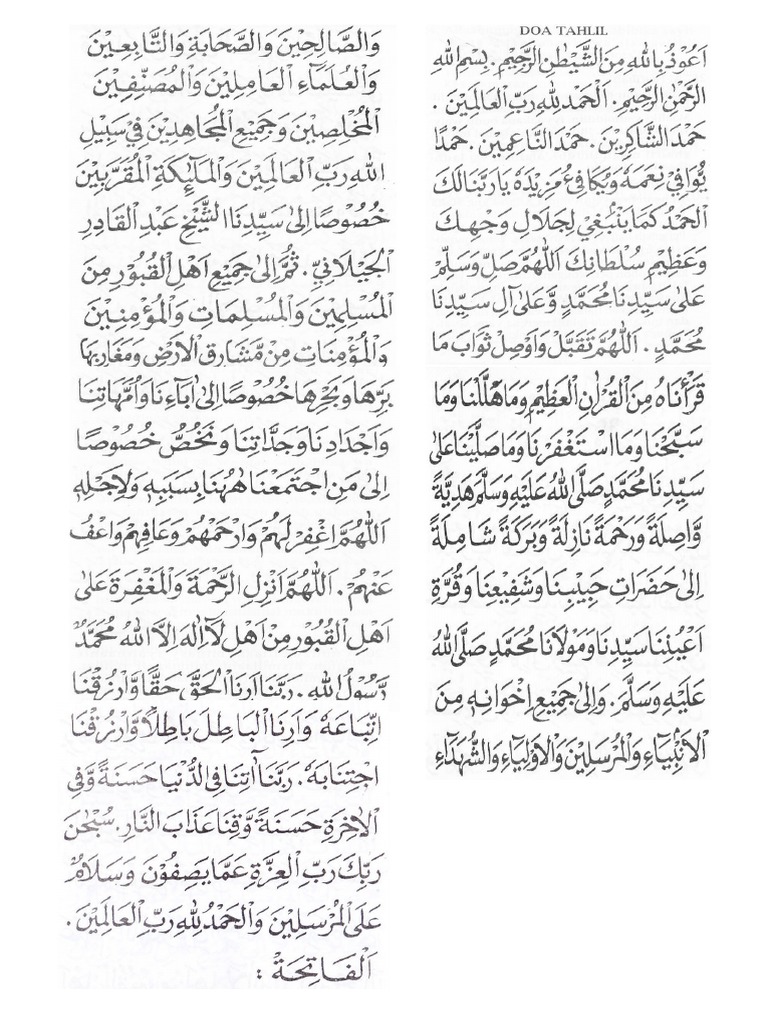 DOA TAHLIL
اَعُوْذُ بِاللهِ مِنَ الشَّيْطٰنِ الرَّجِيْمِ. بِسْمِ اللهِ
الرَّحْمٰنِ الرَّحِيْمِ. اَلْحَمْدُ لِلهِ رَبِّ الْعَالَمِيْنَ.
حَمْدَ الشَّاكِرِيْنَ. حَمْدَ النَّاعِمِيْنَ. حَمْدًا
يُّوَافِيْ نِعَمَهٗ وَيُكَافِئُ مَزِيْدَهٗ يَارَبَّنَالَكَ
الْحَمْدُ كَمَا يَنْبَغِيْ لِجَلَالِ وَجْهِكَ
وَعَظِيْمِ سُلْطَانِكَ اَللّٰهُمَّ صَلِّ وَسَلِّمْ
عَلٰى سَيِّدِنَا مُحَمَّدٍ وَّعَلٰى آلِ سَيِّدِنَا
مُحَمَّدٍ. اَللّٰهُمَّ تَقَبَّلْ وَاَوْصِلْ ثَوَابَ مَا
قَرَأْنَاهُ مِنَ الْقُرْاٰنِ الْعَظِيْمِ وَمَا هَلَّلْنَا وَمَا
سَبَّحْنَا وَمَا اسْتَغْفَرْنَا وَمَا صَلَّيْنَا عَلٰى
سَيِّدِنَا مُحَمَّدٍ صَلَّى اللهُ عَلَيْهِ وَسَلَّمَ هَدِيَّةً
وَّاصِلَةً وَرَحْمَةً نَازِلَةً وَبَرَكَةً شَامِلَةً
اِلٰى حَضَرَاتِ حَبِيْبِنَا وَشَفِيْعِنَا وَقُرَّةِ
اَعْيُنِنَا سَيِّدِنَا وَمَوْلَانَا مُحَمَّدٍ صَلَّى اللهُ
عَلَيْهِ وَسَلَّمَ. وَاِلٰى جَمِيْعِ اِخْوَانِهٖ مِنَ
الْاَنْبِيَاءِ وَالْمُرْسَلِيْنَ وَالْاَوْلِيَاءِ وَالشُّهَدَاءِ
وَالصَّالِحِيْنَ وَالصَّحَابَةِ وَالتَّابِعِيْنَ
وَالْعُلَمَاءِ الْعَامِلِيْنَ وَالْمُصَنِّفِيْنَ
الْمُخْلِصِيْنَ وَجَمِيْعِ الْمُجَاهِدِيْنَ فِيْ سَبِيْلِ
اللهِ رَبِّ الْعَالَمِيْنَ وَالْمَلَائِكَةِ الْمُقَرَّبِيْنَ
خُصُوْصًا اِلٰى سَيِّدِنَا الشَّيْخِ عَبْدِ الْقَادِرِ
الْجَيْلَانِيِّ. ثُمَّ اِلٰى جَمِيْعِ اَهْلِ الْقُبُوْرِ مِنَ
الْمُسْلِمِيْنَ وَالْمُسْلِمَاتِ وَالْمُؤْمِنِيْنَ
وَالْمُؤْمِنَاتِ مِنْ مَّشَارِقِ الْاَرْضِ وَمَغَارِبِهَا
بَرِّهَا وَبَحْرِهَا خُصُوْصًا اِلٰى اٰبَاءِنَا وَاُمَّهَاتِنَا
وَاَجْدَادِنَا وَجَدَّاتِنَا وَنَخُصُّ خُصُوْصًا
اِلٰى مَنِ اجْتَمَعْنَا هٰهُنَا بِسَبَبِهٖ وَلِاَجْلِهٖ
اَللّٰهُمَّ اغْفِرْ لَهُمْ وَارْحَمْهُمْ وَعَافِهِمْ وَاعْفُ
عَنْهُمْ. اَللّٰهُمَّ اَنْزِلِ الرَّحْمَةَ وَالْمَغْفِرَةَ عَلٰى
اَهْلِ الْقُبُوْرِ مِنْ اَهْلِ لَآ اِلٰهَ اِلَّا اللهُ مُحَمَّدٌ
رَّسُوْلُ اللهِ. رَبَّنَا اَرِنَا الْحَقَّ حَقًّا وَّارْزُقْنَا
اتِّبَاعَهٗ وَاَرِنَا الْبَاطِلَ بَاطِلًا وَّارْزُقْنَا
اجْتِنَابَهٗ. رَبَّنَا اٰتِنَا فِى الدُّنْيَا حَسَنَةً وَّفِى
الْاٰخِرَةِ حَسَنَةً وَّقِنَا عَذَابَ النَّارِ. سُبْحٰنَ
رَبِّكَ رَبِّ الْعِزَّةِ عَمَّا يَصِفُوْنَ وَسَلَامٌ
عَلَى الْمُرْسَلِيْنَ وَالْحَمْدُ لِلهِ رَبِّ الْعَالَمِيْنَ.
اَلْفَاتِحَةْ :